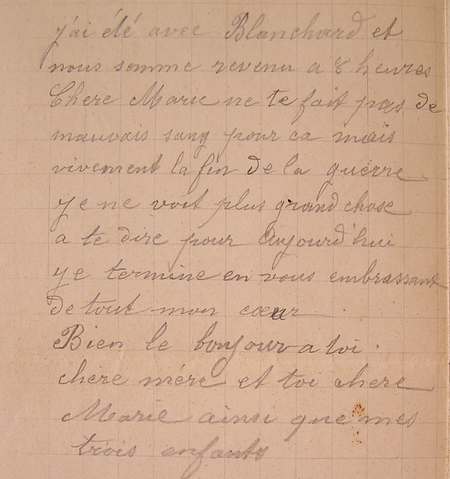 j'ai été avec Blanchard et
nous somme revenu a 8 heures
Chere Marie ne te fait pas de
mauvais sang pour ca mais
vivement la fin de la guerre
je ne voit plus grand chose
a te dire pour aujourd'hui
je termine en vous embrassant
de tout mon cœur
Bien le bonjour a toi
chère mére et toi chere
Marie ainsi que mes
trois enfants